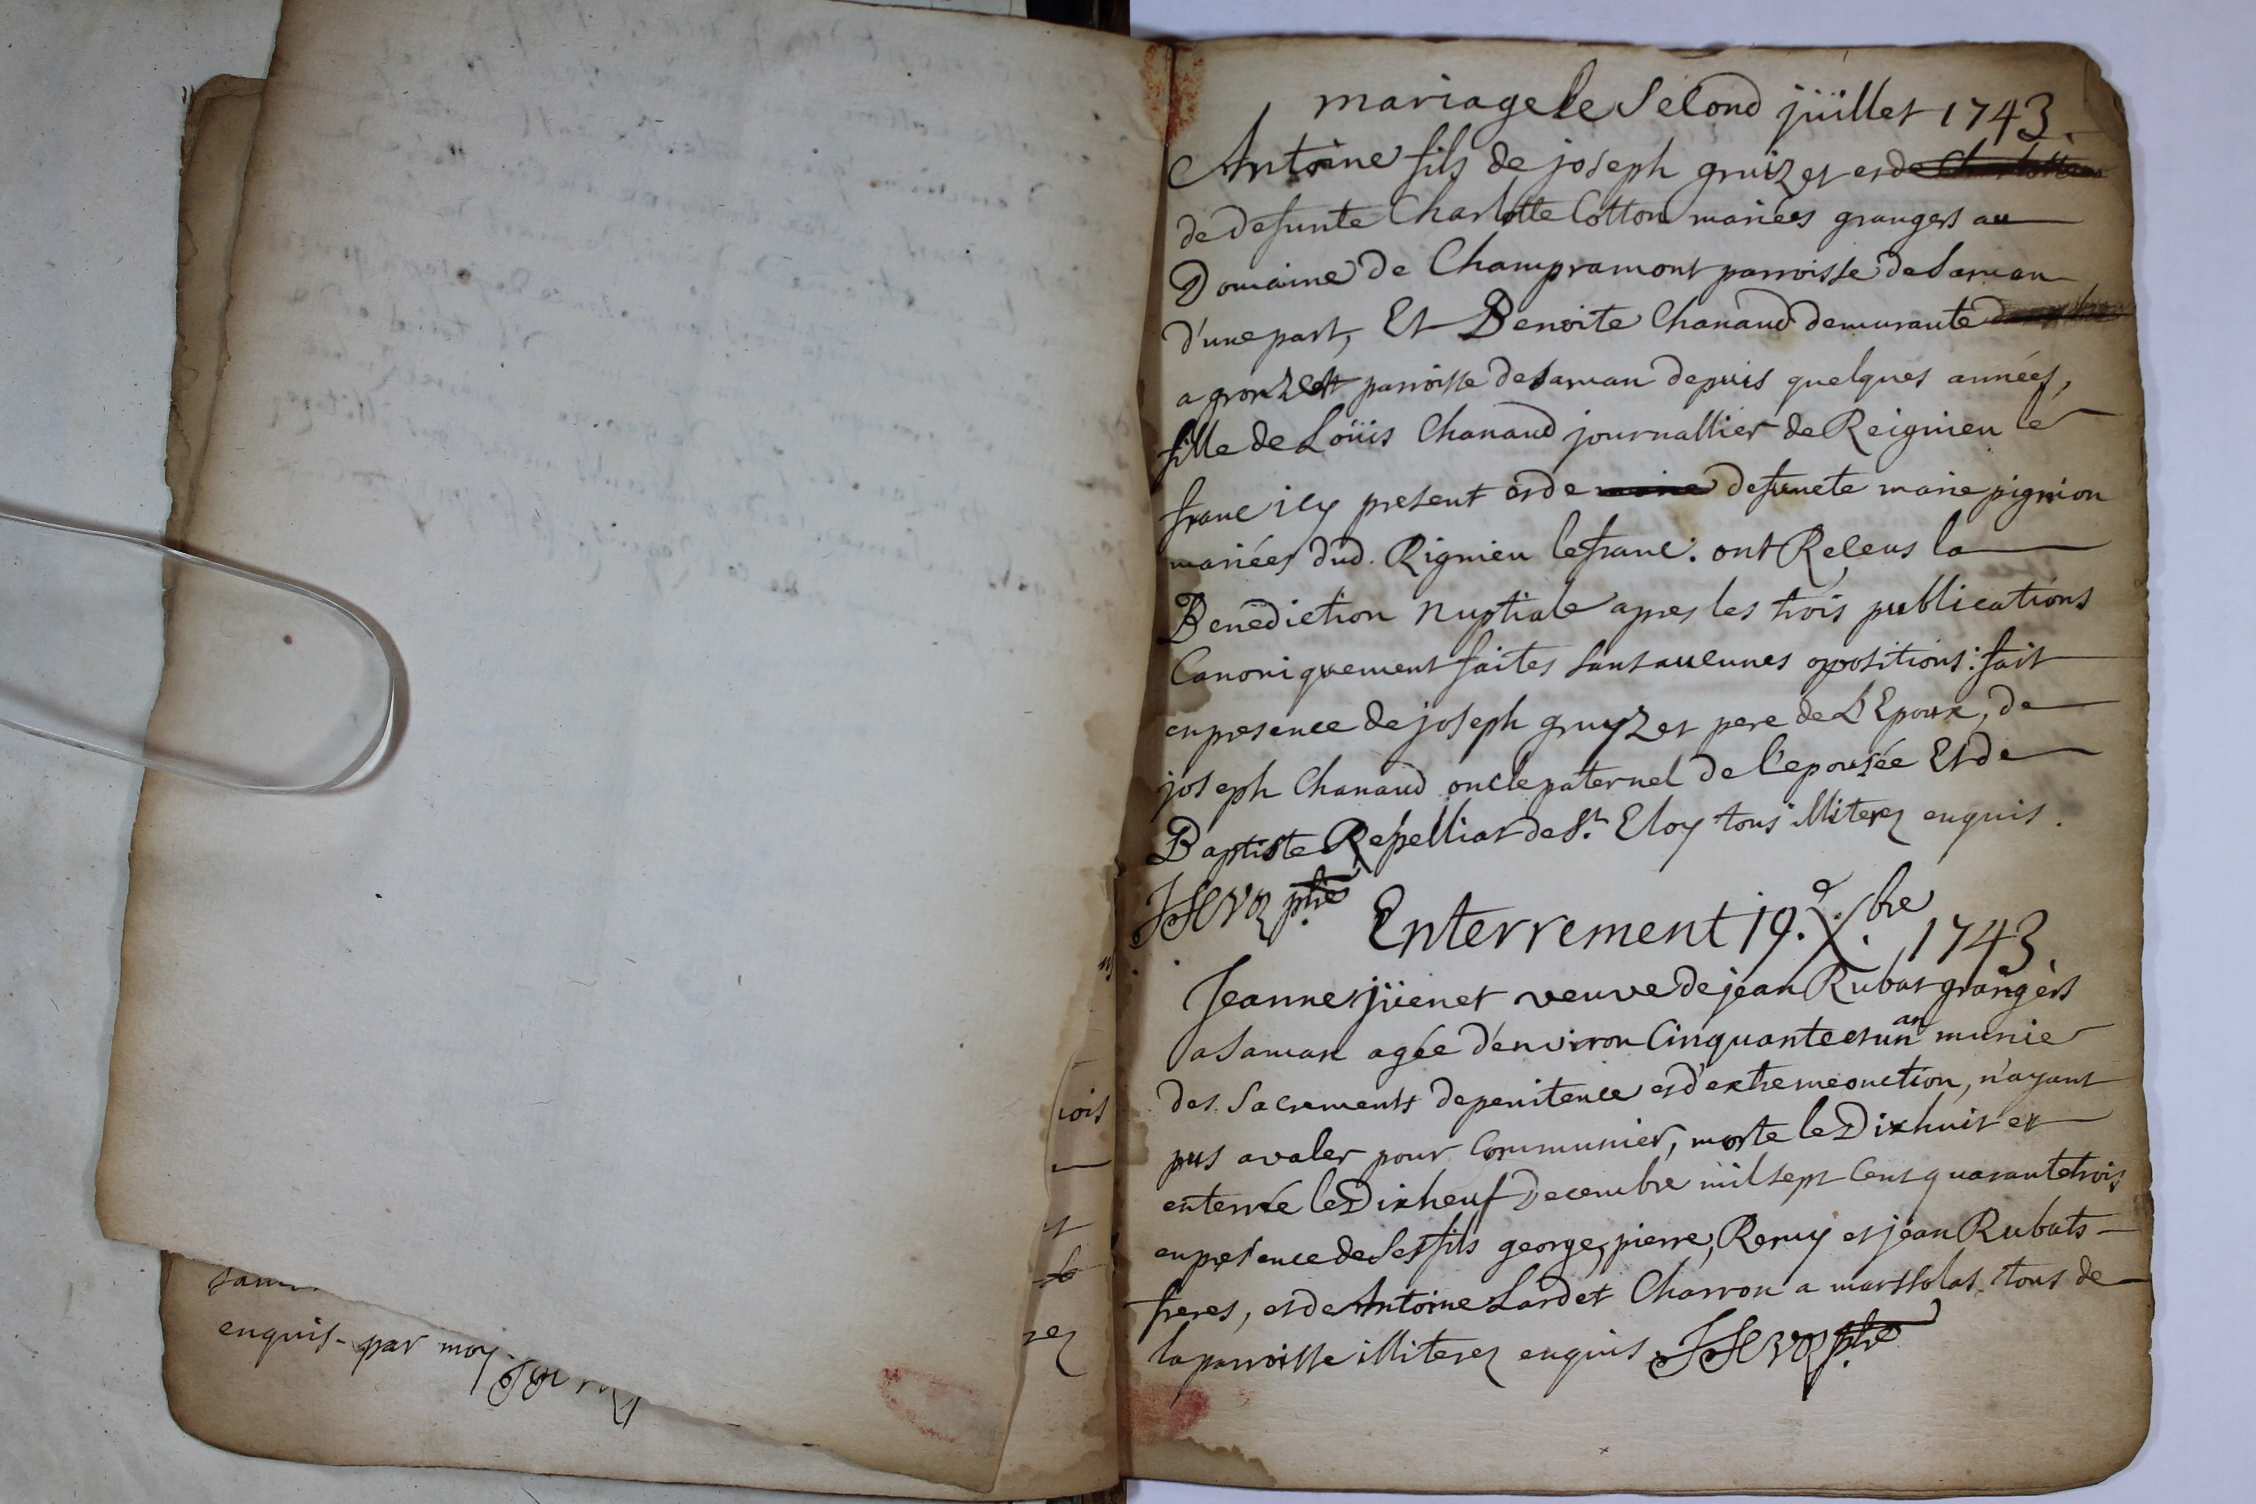 mariage le second juillet 1743.
Antoine fils de joseph gruizet et de
de defunte Charlotte Cotton mariées grangers au
Domaine de Champramont parroisse de Saman
d'une part, Et Benoite Chanaud demurante
a gronzet parroisse de Saman depuis quelques années,
fille de Loüis Chanaud journallier de Reignieu le
franc icy present et de defuncte marie pignion
mariées dud. Rignieu lefranc: ont Receus la
Benediction nuptiale apres les trois publications
Canoniquement faites sans aucunes opositions: fait
en presence de joseph gruyzet pere de L'Epoux, de
joseph Chanaud oncle paternel de l'epousée Et de
Baptiste Repelliat de St. Eloy tous illiterez enquis.
ptre
Enterrement 19.e X.bre 1743
Jeanne jüenet veuve de jean Rubat grangers
a Saman agée d'environ Cinquante et un an munie
des Sacrements de penitence et d'extreme onction, n'ayant
pus avaler pour Communier, morte le Dix huit et
enterrée le Dix neuf Decembre mil sept cent quarante trois
en presence de ses fils george, pierre, Remy et jean Rubats
freres, et de Antoine Lardet Charron a marssolas tous de
la parroisse illiterez enquis ptre
ois
et
rez
enquis par moy